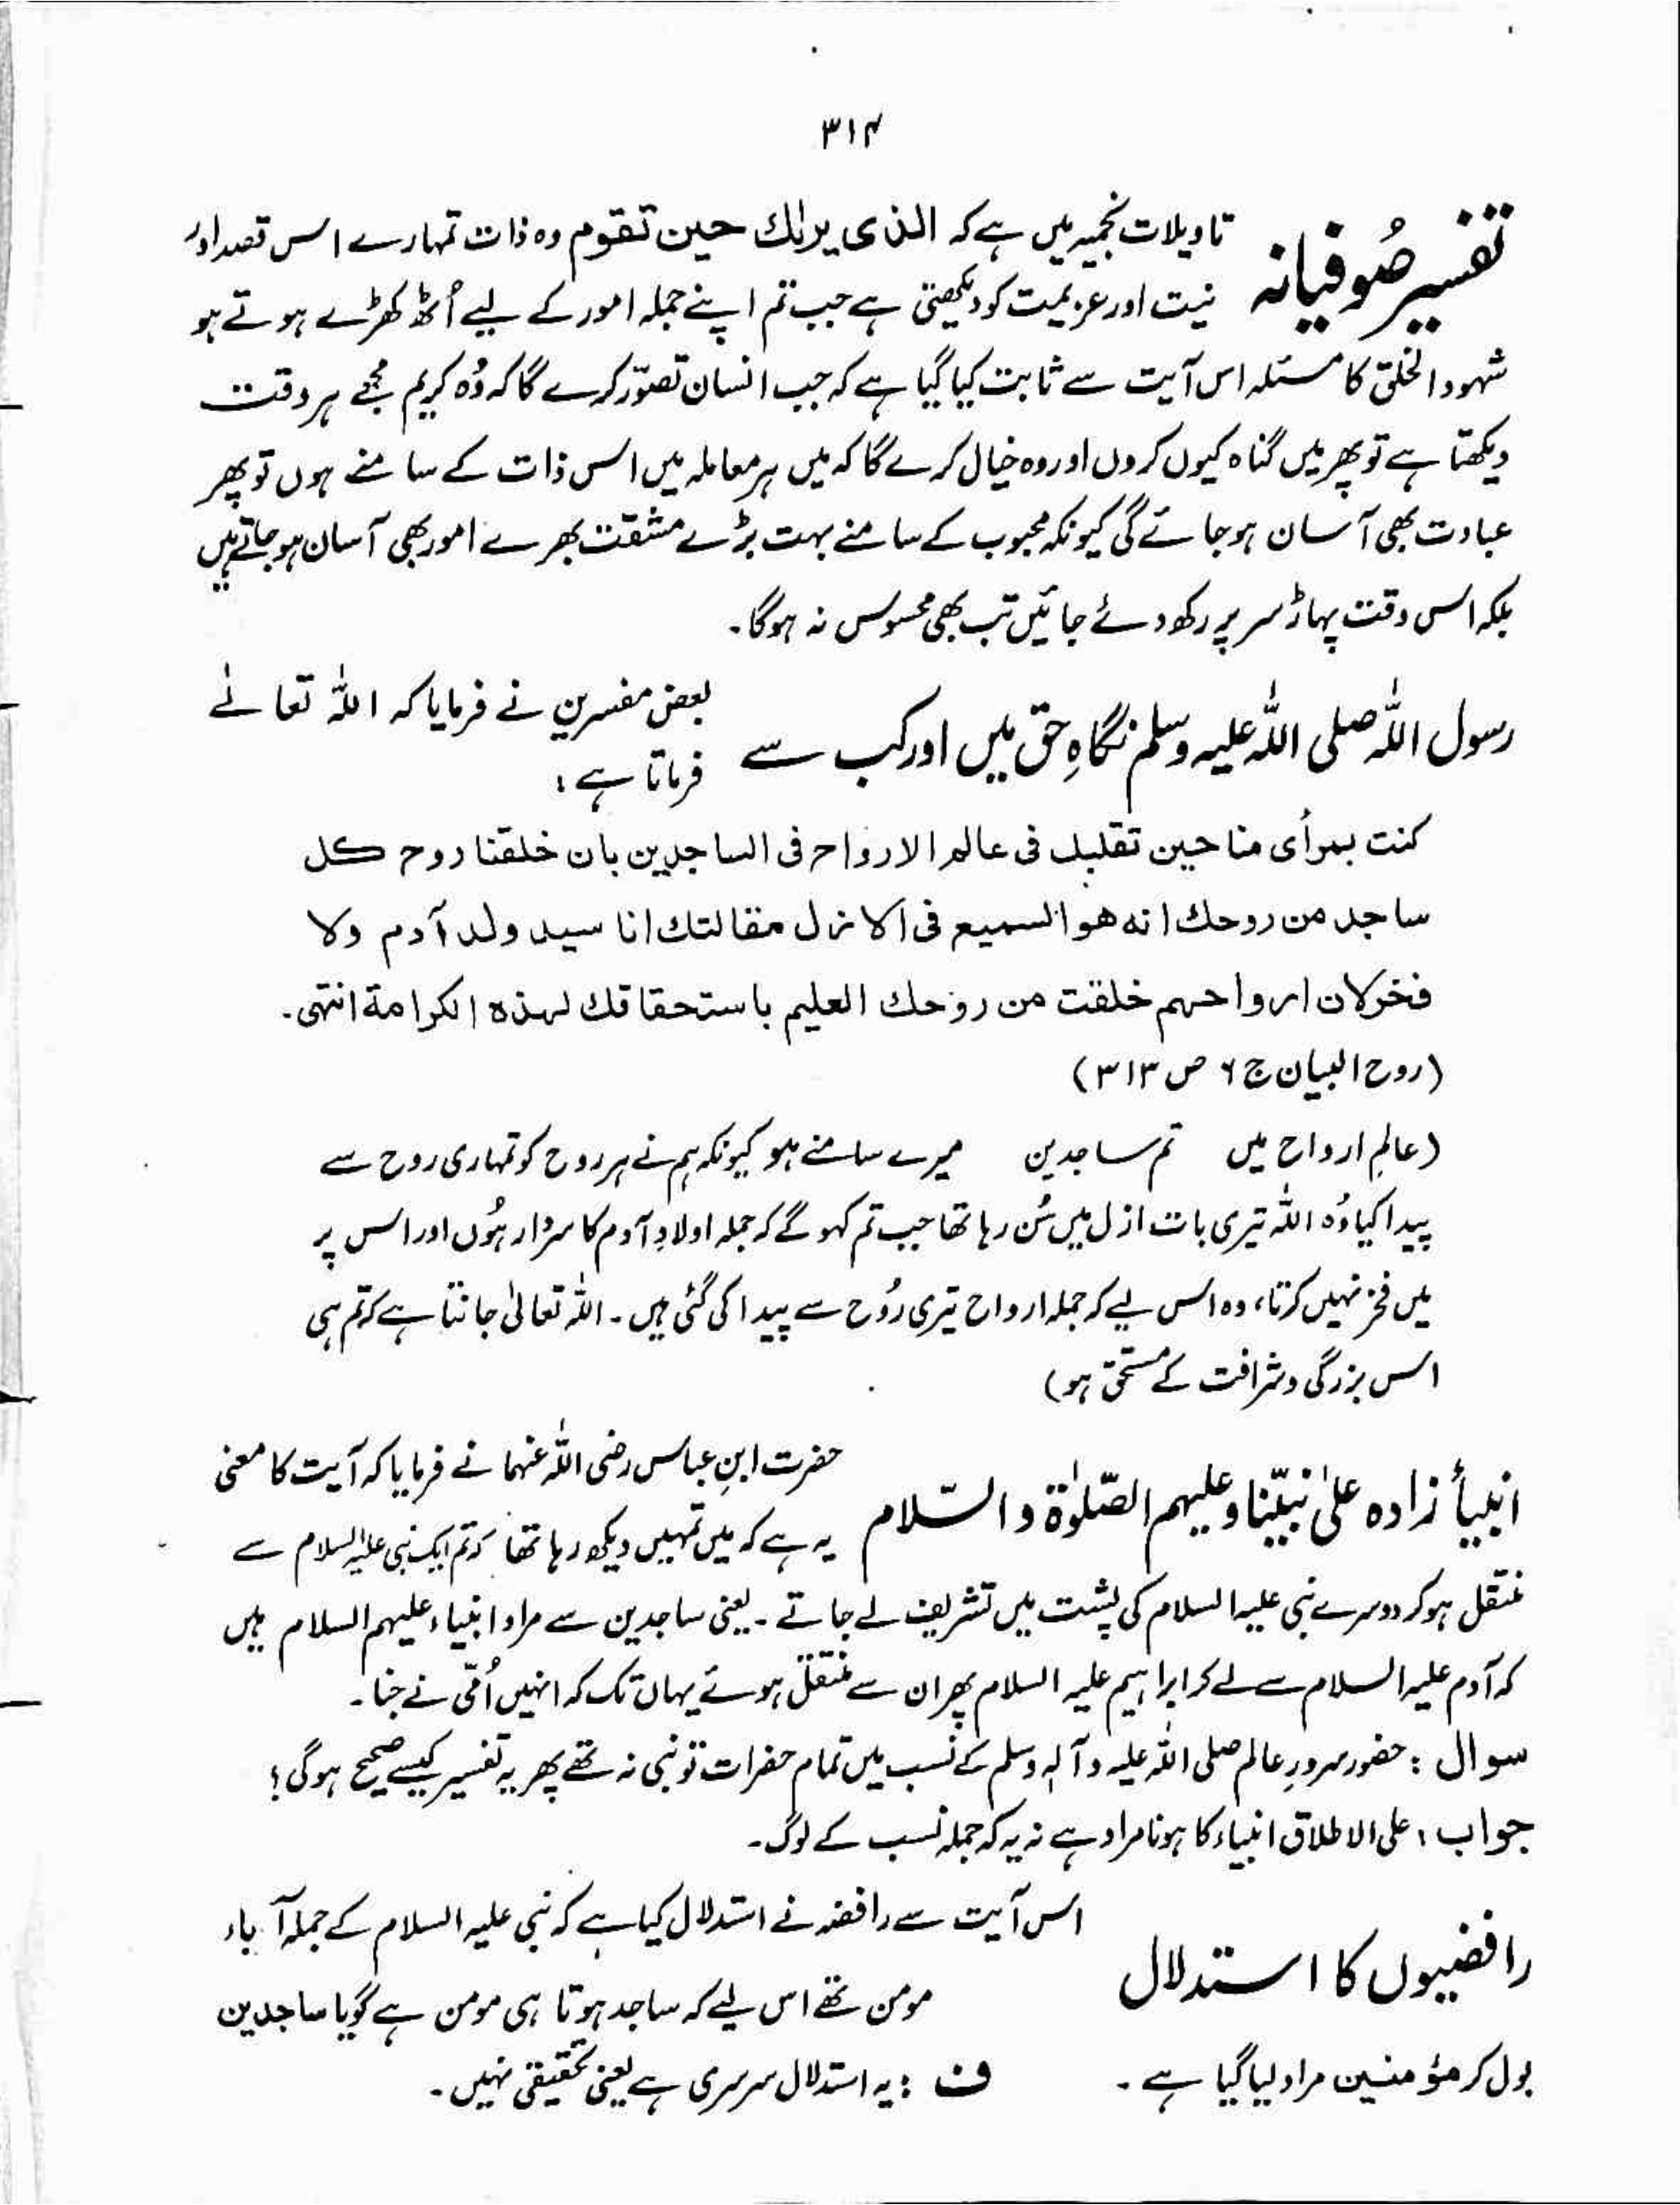 ۳۱۴
تفسیر صُوفیانہ تاویلات نجمیہ میں ہے کہ الذی یراك حین تقوم وہ ذات تمہارے اس قصد اور
نیت اور عزیمت کو دیکھتی ہے جب تم اپنے جملہ امور کے لیے اُٹھ کھڑے ہوتے ہو
شہود الخلق کا مسئلہ اس آیت سے ثابت کیا گیا ہے کہ جب انسان تصوّر کرے گا کہ وُہ کریم مجھے ہر وقت
دیکھتا ہے تو پھر میں گناہ کیوں کروں اور وہ خیال کرے گا کہ میں ہر معاملہ میں اس ذات کے سامنے ہوں تو پھر
عبادت بھی آسان ہو جائے گی کیونکہ محبوب کے سامنے بہت بڑے مشقت بھرے امور بھی آسان ہو جاتے ہیں
بلکہ اس وقت پہاڑ سر پر رکھ دئے جائیں تب بھی محسوس نہ ہوگا۔
رسول اللہ صلی اللہ علیہ وسلم نگاہِ حق میں اور کب سے بعض مفسرین نے فرمایا کہ اللہ تعالےٰ
فرماتا ہے :
کنت بمرأی منا حین تقلبك فی عالم الارواح فی الساجدین بان خلقنا روح کل
ساجد من روحك انه هو السمیع فی الازل مقالتك انا سید ولد آدم ولا
فخر لان ارواحهم خلقت من روحك العلیم باستحقاقك لهذه الکرامة انتهی۔
(روح البیان ج ۶ ص ۳۱۳)
(عالمِ ارواح میں تم ساجدین میرے سامنے ہو کیونکہ ہم نے ہر روح کو تمہاری روح سے
پیدا کیا وُہ اللہ تیری بات ازل میں سُن رہا تھا جب تم کہو گے کہ جملہ اولادِ آدم کا سردار ہُوں اور اس پر
میں فخر نہیں کرتا، وہ اس لیے کہ جملہ ارواح تیری رُوح سے پیدا کی گئی ہیں۔ اللہ تعالیٰ جانتا ہے کہ تم ہی
اس بزرگی و شرافت کے مستحق ہو)
انبیأ زادہ علیٰ نبیّنا وعلیہم الصّلوٰۃ والسّلام حضرت ابنِ عباس رضی اللہ عنہما نے فرمایا کہ آیت کا معنی
یہ ہے کہ میں تمہیں دیکھ رہا تھا کہ تم ایک نبی علیہ السلام سے
منتقل ہو کر دوسرے نبی علیہ السلام کی پشت میں تشریف لے جاتے۔ یعنی ساجدین سے مراد انبیاء علیہم السلام ہیں
کہ آدم علیہ السلام سے لے کر ابراہیم علیہ السلام پھر ان سے منتقل ہوئے یہاں تک کہ انہیں اُمّی نے جنا۔
سوال : حضور سرورِ عالم صلی اللہ علیہ وآلہٖ وسلم کے نسب میں تمام حضرات تو نبی نہ تھے پھر یہ تفسیر کیسے صحیح ہوگی؟
جواب : علی الاطلاق انبیاء کا ہونا مراد ہے نہ یہ کہ جملہ نسب کے لوگ۔
رافضیوں کا استدلال اس آیت سے رافضہ نے استدلال کیا ہے کہ نبی علیہ السلام کے جملہ آباء
مومن تھے اس لیے کہ ساجد ہوتا ہی مومن ہے گویا ساجدین
بول کر مؤمنین مراد لیا گیا ہے۔ ف : یہ استدلال سرسری ہے یعنی تحقیقی نہیں۔